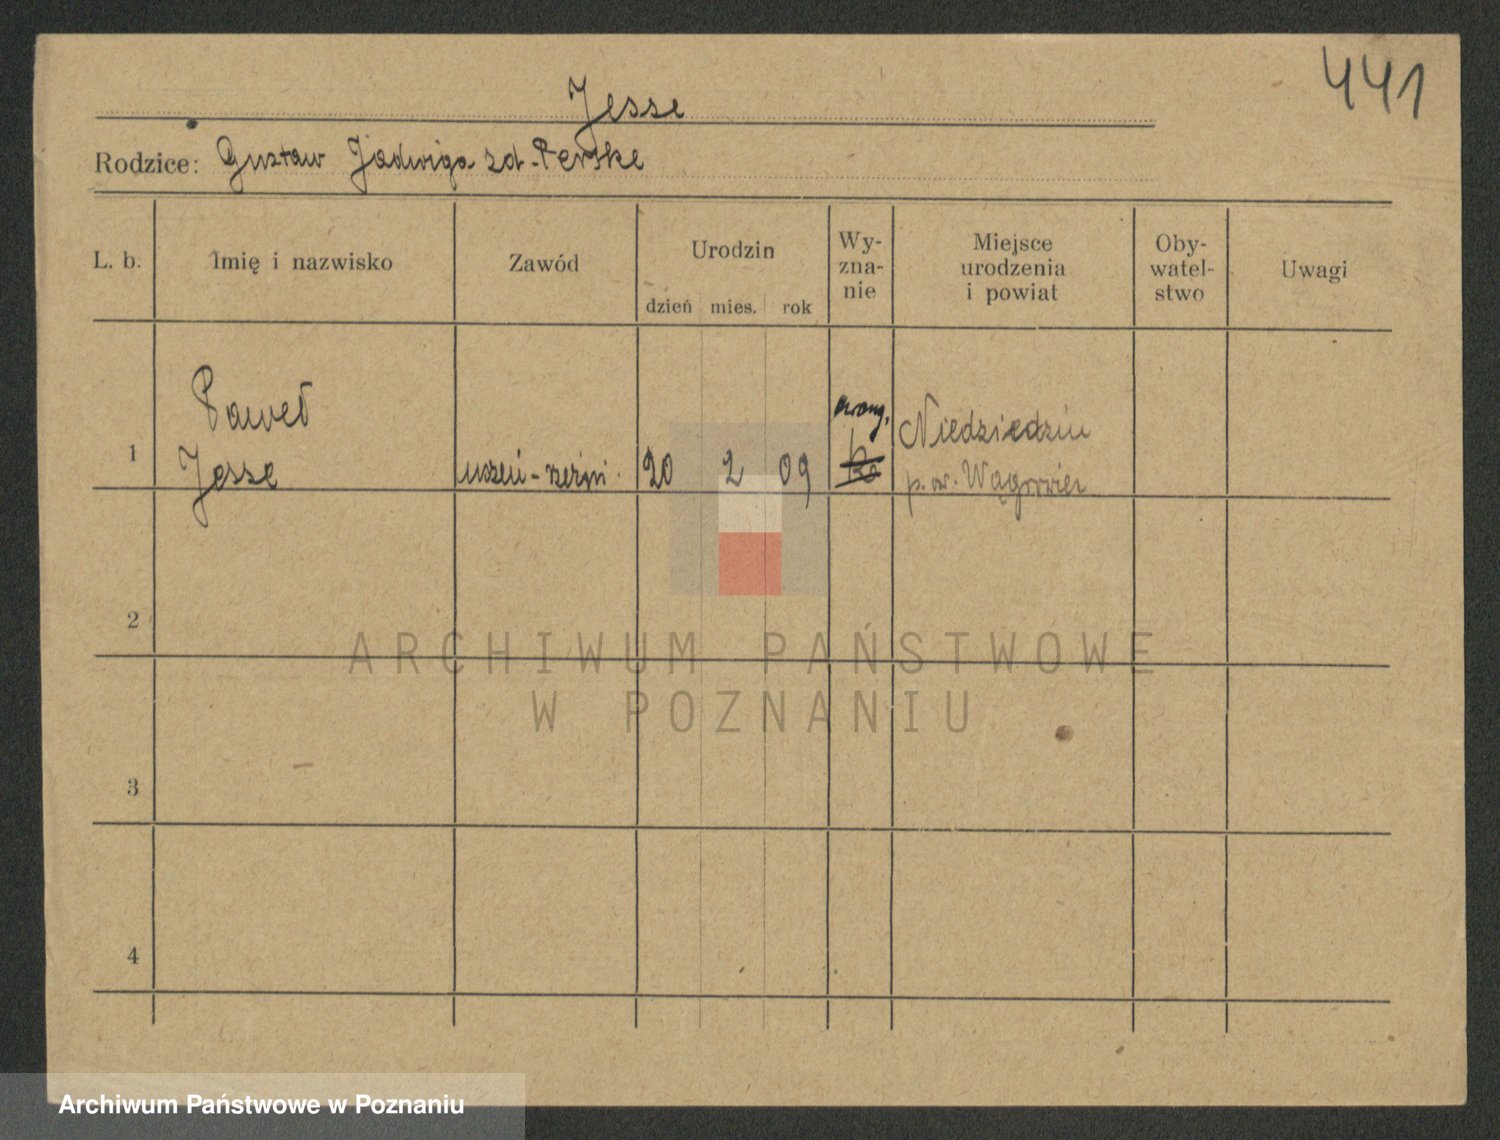 441
Jesse
Rodzice: Gustaw Jadwiga zd. Perske
L. b.
Imię i nazwisko
Zawód
Urodzin
dzień mies. rok
Wy-
zna-
nie
Miejsce
urodzenia
i powiat
Oby-
watel-
stwo
Uwagi
1
Paweł
Jesse
uczeń - rzeźni.
20 2 09
ewang.
Niedziedzin
pow. Wągrowiec
2
3
4
ARCHIWUM PAŃSTWOWE
W POZNANIU
Archiwum Państwowe w Poznaniu